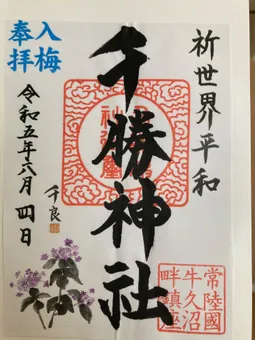 祈世界平和
千勝神社
入梅
奉拝
令和五年六月四日
千良
常陸國
牛久沼
畔鎮座